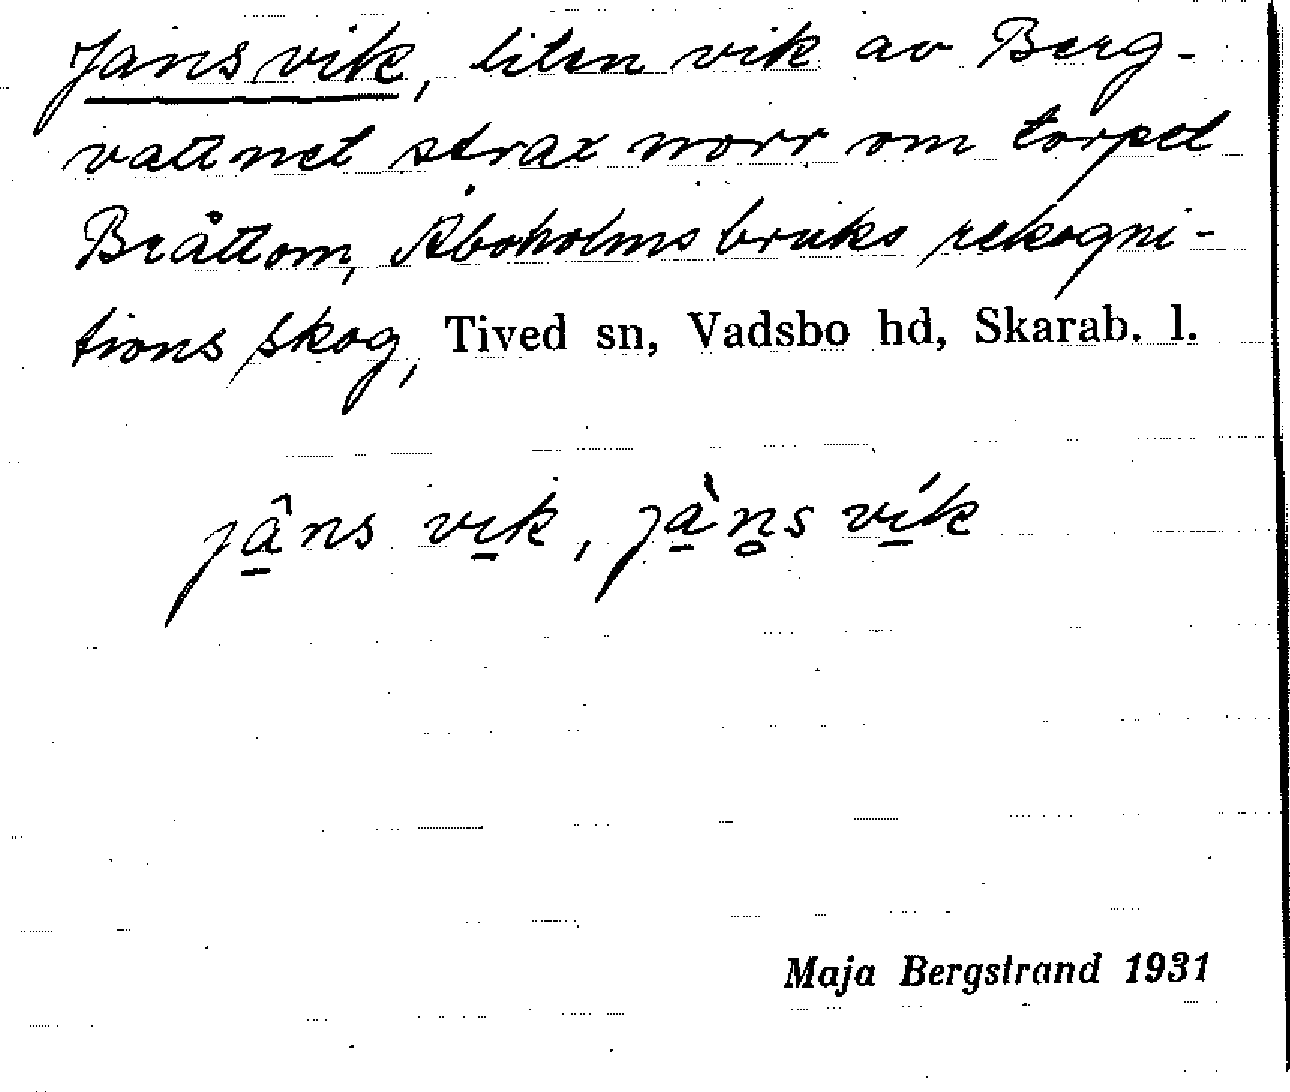 Jans vik, liten vik av Berg-
vattnet strax norr om torpet
Bråttom, Åboholms bruks rekogni-
tions skog, Tived sn, Vadsbo hd, Skarab. l.
jâ̱ns vi̱k, jà̱n̥s ví̱k
Maja Bergstrand 1931